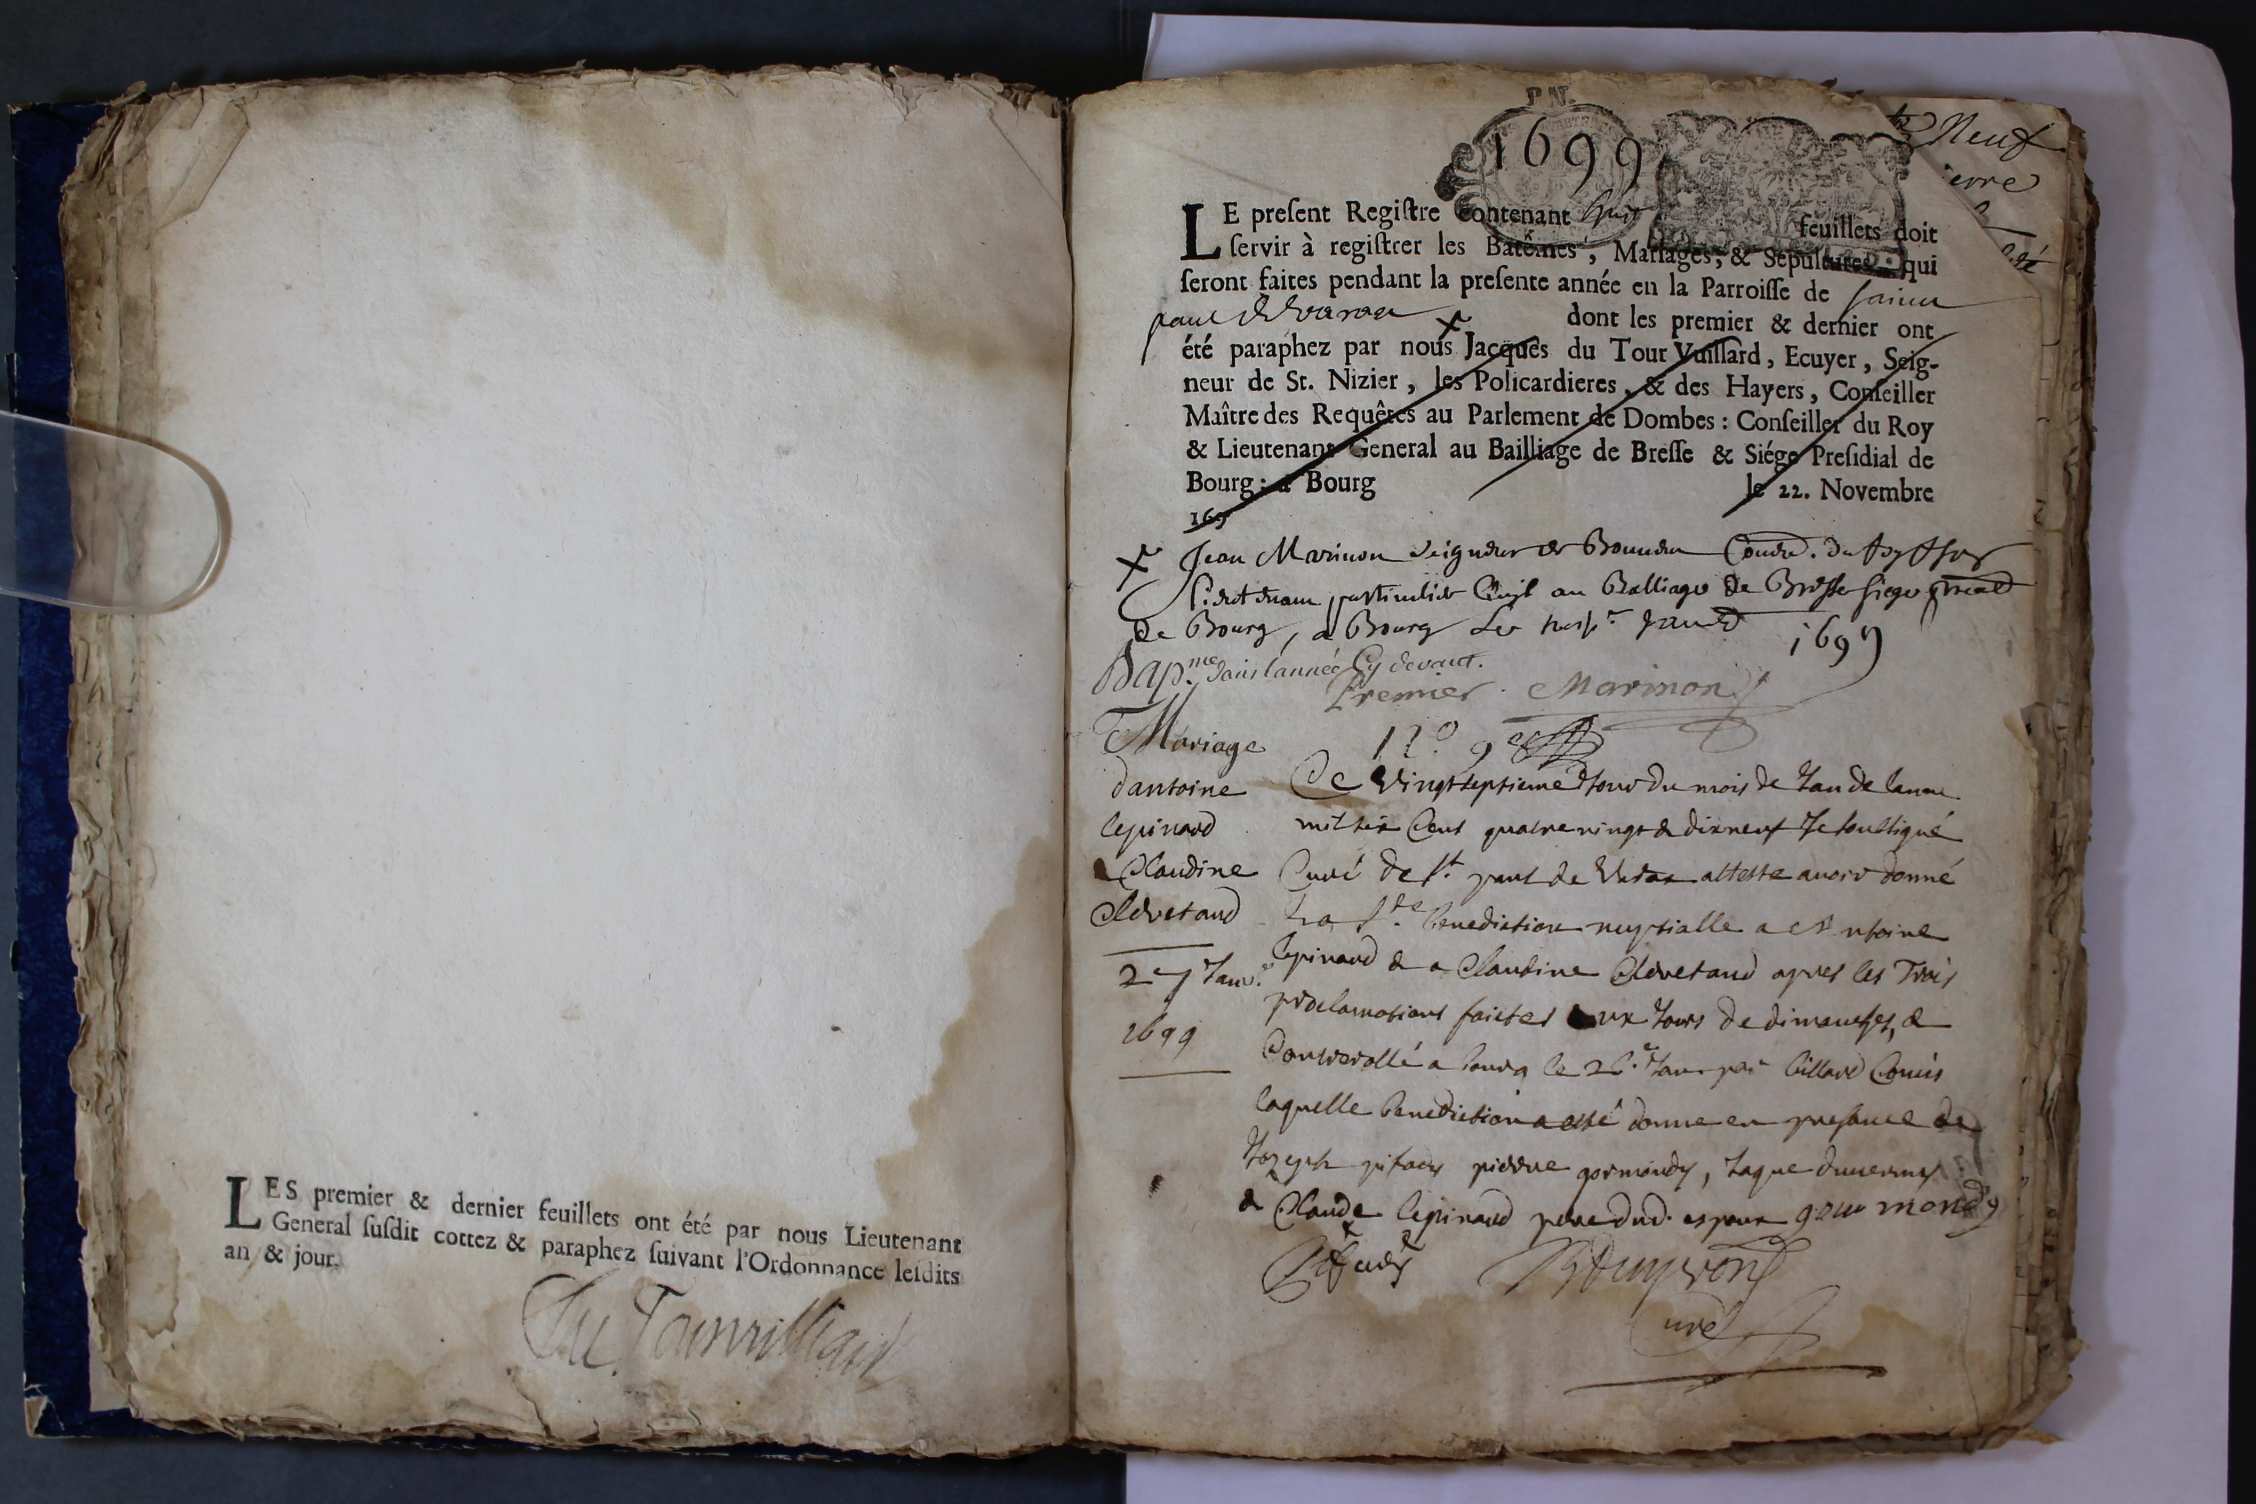 LES premier & dernier feuillets ont été par nous Lieutenant
General ſuſdit cottez & paraphez ſuivant l'Ordonnance leſdits
an & jour.
Du Tourvilliard
P.N.
1699
Neuf
ierre
LE preſent Regiſtre Contenant huit feuillets doit
ſervir à regiſtrer les Batêmes, Mariages, & Sepultures qui
ſeront faites pendant la preſente année en la Parroiſſe de ſainct
paul de varax dont les premier & dernier ont
été paraphez par nous Jacques du Tour Vuillard, Ecuyer, Seig-
neur de St. Nizier, les Policardieres, & des Hayers, Conſeiller
Maître des Requêtes au Parlement de Dombes : Conſeiller du Roy
& Lieutenant General au Bailliage de Breſſe & Siége Preſidial de
Bourg : à Bourg le 22. Novembre
169
Jean Marinon Seigneur de
Lieutenant particulier Civil au Balliage de Bresse siege
de Bourg, a Bourg le 1699
Bap.me dans l'année Cy devant.
Premier. Marinon
Mariage
d'antoine
lepinard
Claudine
Clevetand
27 Janv.
1699
Ce Vingtseptieme Jour du mois de Jan de lanne
mil six Cent quatre vingt & dix neuf Je soussigné
Curé de st. paul de Varax atteste avoir donné
La ste. benediction nuptialle a Antoine
lepinard & a Claudine Clevetand apres les Trois
proclamations faictes aux Jours de dimanches, &
Controollé a bourg le 26.e Jan par billard Comis
laquelle benediction a esté donne en presence de
Joseph pierre gormondy, Jaque
& Claude lepinard pere dud. espoux gourmondy
Curé